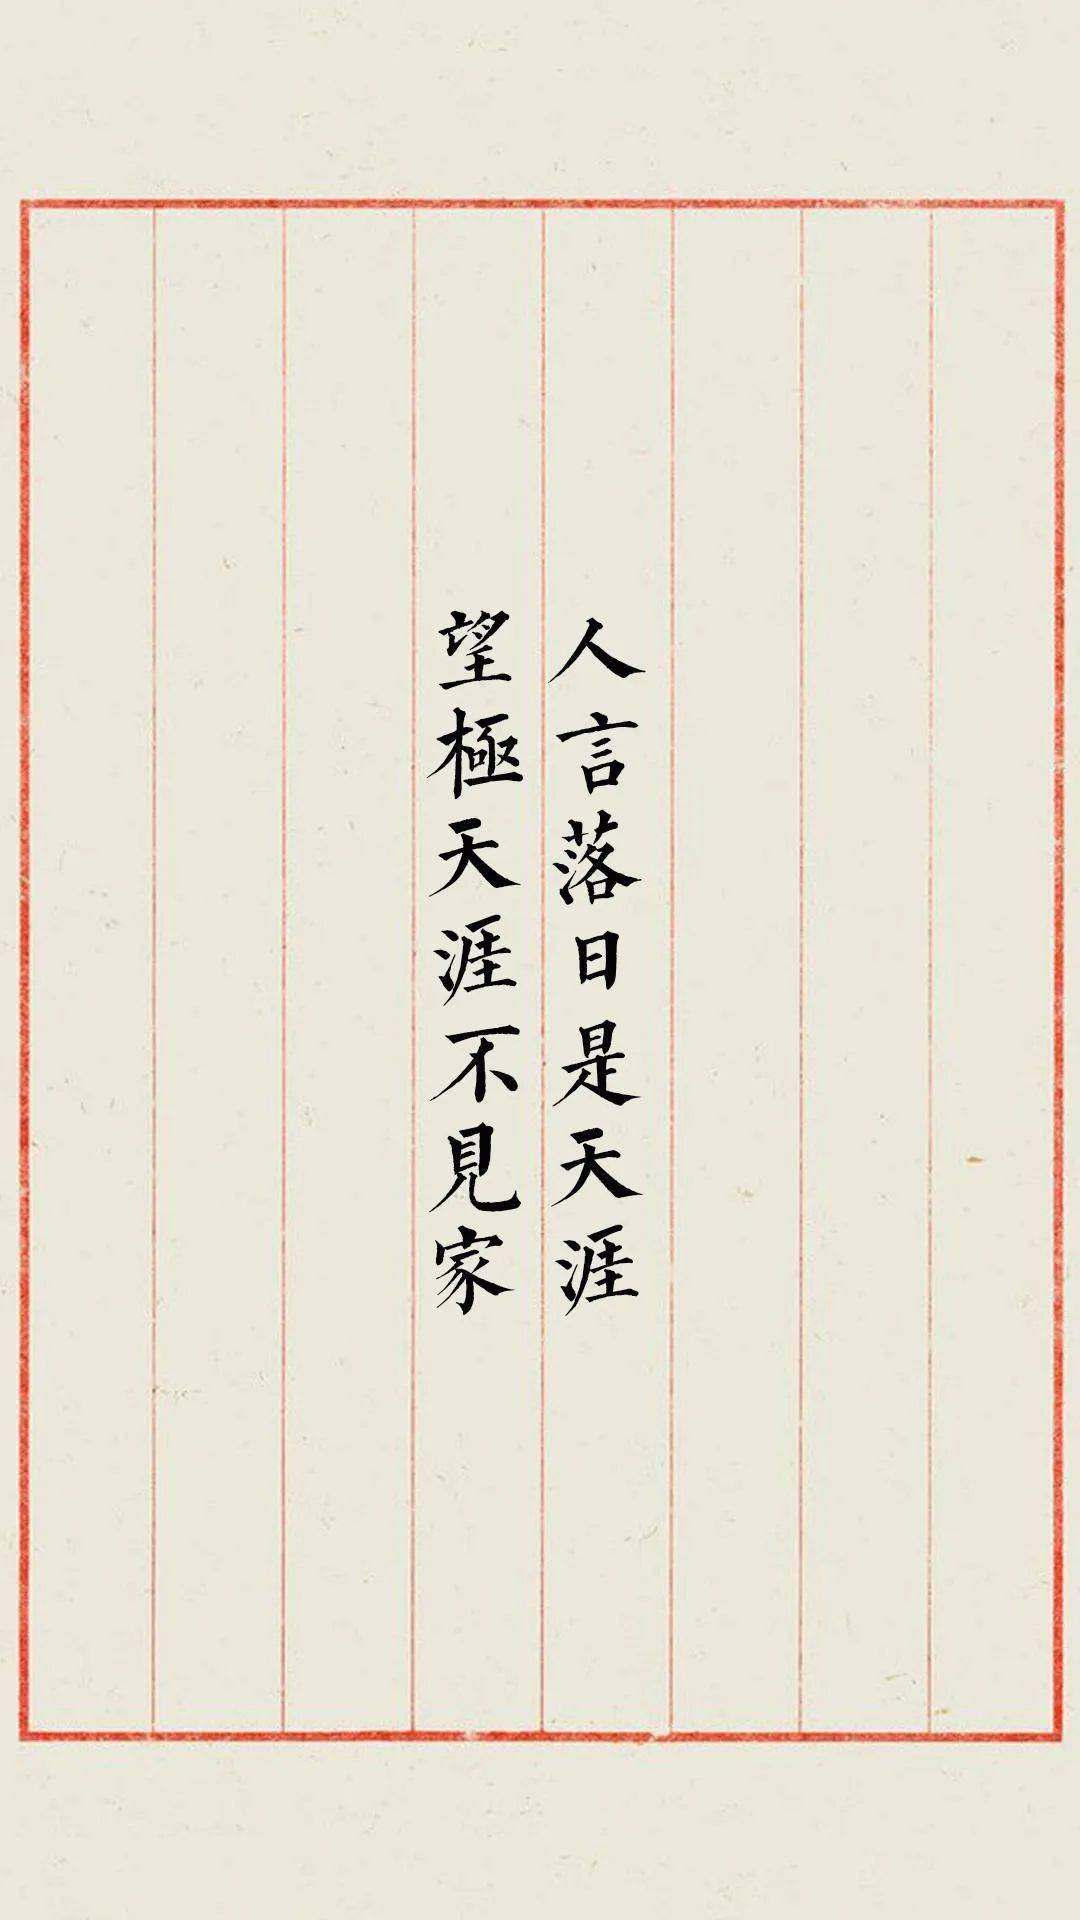 人言落日是天涯
望極天涯不見家